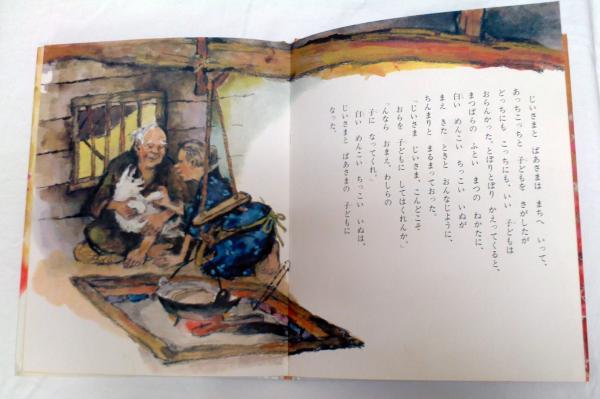 じいさまと ばあさまは まちへ いって、
あっちこっちと 子どもを さがしたが
どっちにも こっちにも、いい 子どもは
おらんかった。とぼりとぼり かえってくると、
まつばらの ふとい まつの ねかたに、
白い めんこい ちっこい いぬが
まえ きた ときと おんなじように、
ちんまりと まるまっておった。
「じいさま じいさま、こんどこそ
おらを 子どもに してはくれんか。」
「んなら おまえ、わしらの
子に なってくれ。」
白い めんこい ちっこい いぬは、
じいさまと ばあさまの 子どもに
なった。